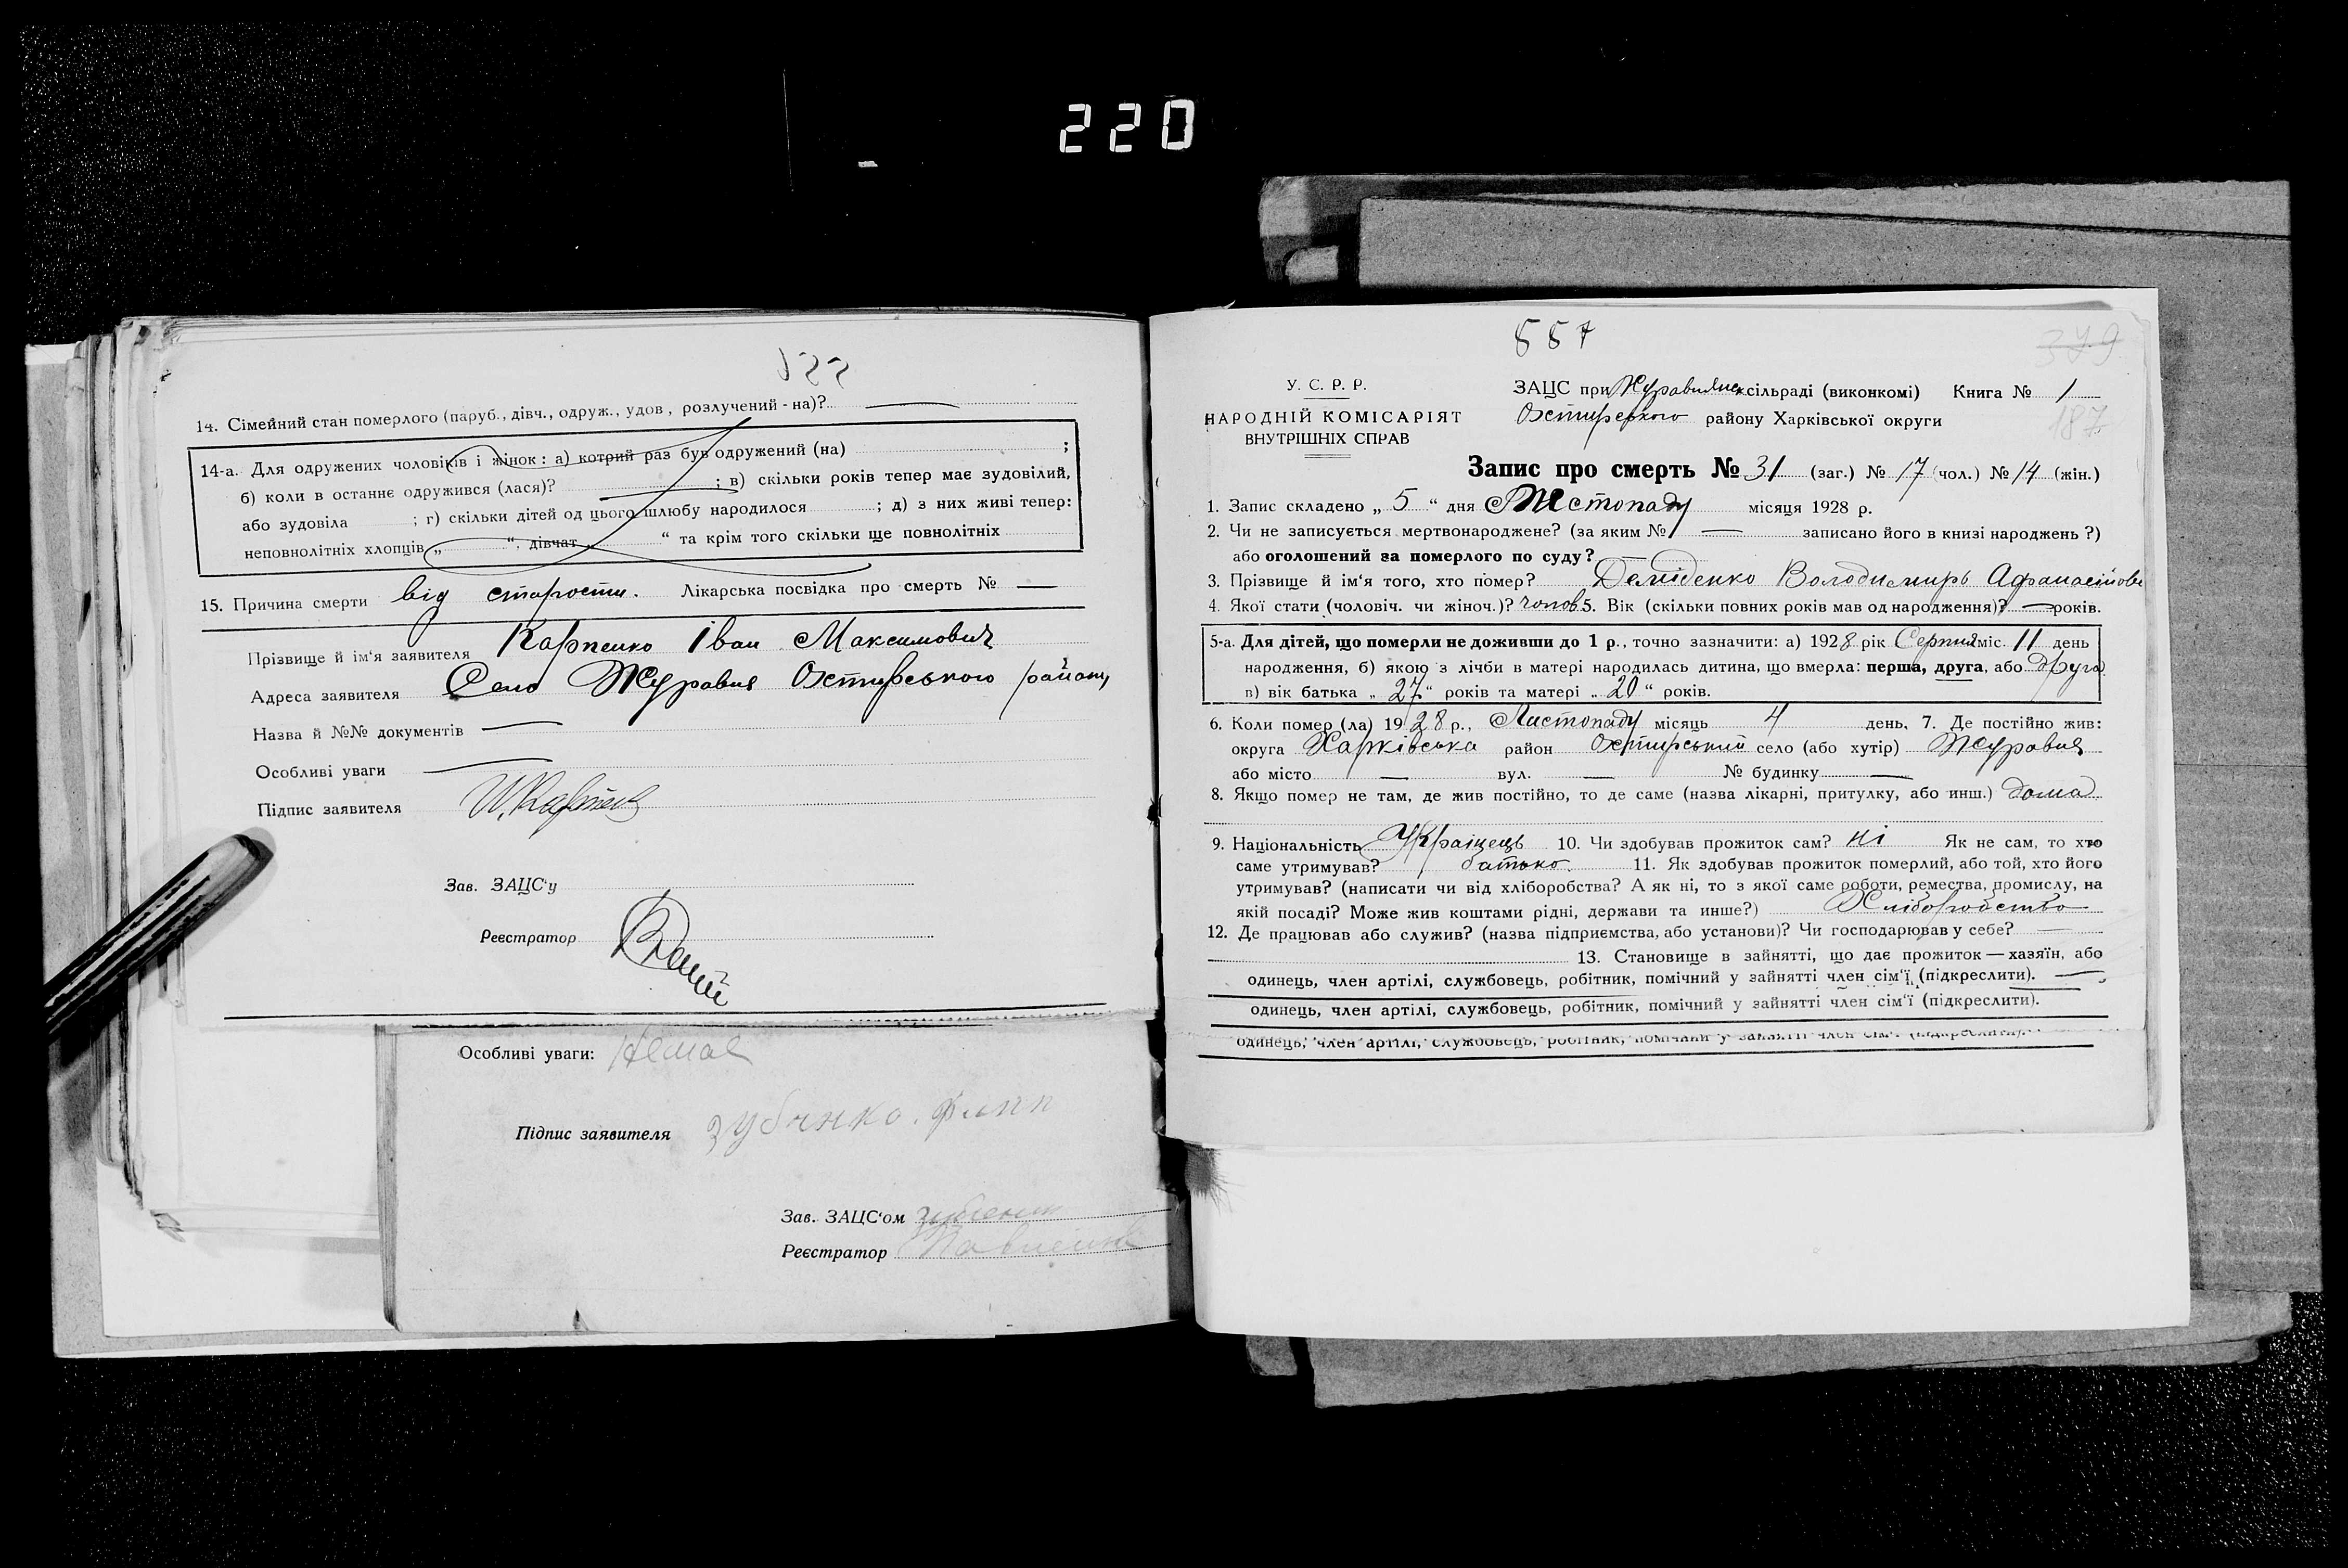 220
14. Сімейний стан померлого (паруб., дівч., одруж., удов., розлучений-на)? —
14-а. Для одружених чоловіків і жінок: а) котрий раз був одружений (на) ;
б) коли в останнє одружився (лася)? ; в) скільки років тепер має зудовілий,
або зудовіла ; г) скільки дітей од цього шлюбу народилося ; д) з них живі тепер:
неповнолітніх хлопців „ “, дівчат „ “ та крім того скільки ще повнолітніх
15. Причина смерти від старости. Лікарська посвідка про смерть № —
Прізвище й ім'я заявителя Карпенко Іван Максимович
Адреса заявителя Село Журавня Охтирського району
Назва й №№ документів —
Особливі уваги —
Підпис заявителя И. Карпенко
Зав. ЗАЦС'у
Реєстратор
Особливі уваги: Немає
Підпис заявителя
Зав. ЗАЦС'ом
Реєстратор
557
379
У. С. Р. Р.
НАРОДНІЙ КОМІСАРІЯТ
ВНУТРІШНІХ СПРАВ
ЗАЦС при Журавнянск сільраді (виконкомі) Книга № 1
Охтирського району Харківської округи
187
Запис про смерть № 31 (заг.) № 17 (чол.) № 14 (жін.)
1. Запис складено „ 5 “ дня Листопаду місяця 1928 р.
2. Чи не записується мертвонароджене? (за яким № — записано його в книзі народжень?)
або оголошений за померлого по суду? —
3. Прізвище й ім'я того, хто помер? Деміденко Володимирь Афанасійови
4. Якої стати (чоловіч. чи жіноч.)? чолов 5. Вік (скільки повних років мав од народження)? — років.
5-а. Для дітей, що померли не доживши до 1 р., точно зазначити: а) 1928 рік Серпня міс. 11 день
народження, б) якою з лічби в матері народилась дитина, що вмерла: перша, друга, або Друга
в) вік батька „ 27 “ років та матері „ 20 “ років.
6. Коли помер (ла) 1928 р., Листопаду місяць 4 день. 7. Де постійно жив:
округа Харківська район Охтирський село (або хутір) Журавня
або місто — вул. — № будинку —
8. Якщо помер не там, де жив постійно, то де саме (назва лікарні, притулку, або инш.) дома
9. Національність Українець 10. Чи здобував прожиток сам? ні Як не сам, то хто
саме утримував? батько. 11. Як здобував прожиток померлий, або той, хто його
утримував? (написати чи від хліборобства? А як ні, то з якої саме роботи, ремества, промислу, на
якій посаді? Може жив коштами рідні, держави та инше?) Хліборобство
12. Де працював або служив? (назва підприємства, або установи)? Чи господарював у себе? —
13. Становище в зайнятті, що дає прожиток — хазяїн, або
одинець, член артілі, службовець, робітник, помічний у зайнятті член сім'ї (підкреслити). —
одинець, член артілі, службовець, робітник, помічний у зайнятті член сім'ї (підкреслити).
одинець, член артілі, службовець, робітник, помічний у зайнятті член сім'ї (підкреслити).